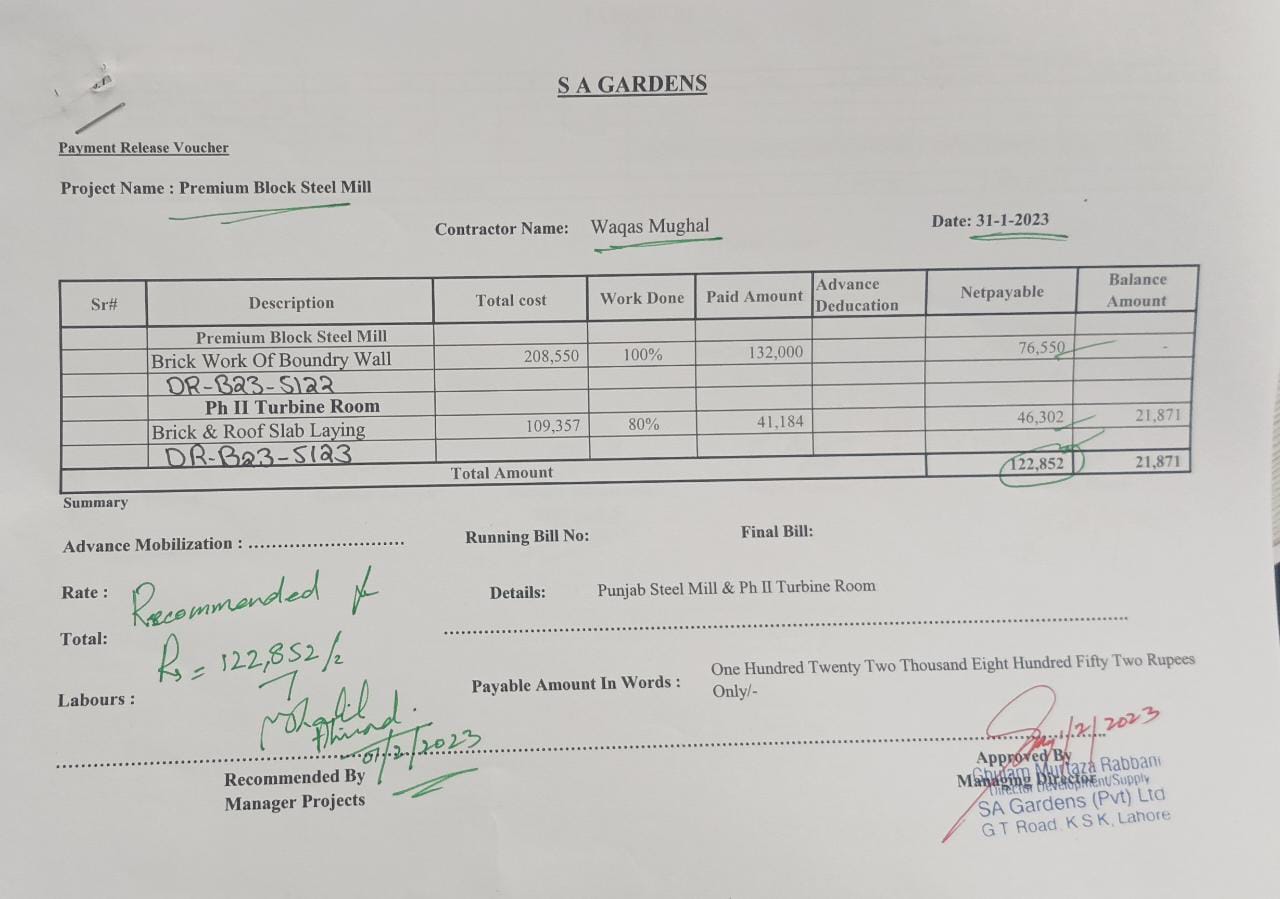 S A GARDENS
Payment Release Voucher
Project Name : Premium Block Steel Mill
Contractor Name: Waqas Mughal Date: 31-1-2023
Sr# Description Total cost Work Done Paid Amount Advance Deducation Netpayable Balance Amount
Premium Block Steel Mill
Brick Work Of Boundry Wall 208,550 100% 132,000 76,550 -
DR-B23-5122
Ph II Turbine Room
Brick & Roof Slab Laying 109,357 80% 41,184 46,302 21,871
DR-B23-5123
Total Amount 122,852 21,871
Summary
Advance Mobilization : ........................... Running Bill No: Final Bill:
Rate : Recommended Details: Punjab Steel Mill & Ph II Turbine Room
Total:
Rs = 122,852/=
Labours : Payable Amount In Words : One Hundred Twenty Two Thousand Eight Hundred Fifty Two Rupees
Only/-
Khalil
Ahmad.
01/2/2023
1/2/2023
Recommended By
Manager Projects
Approved By
Managing Director
Ghulam Murtaza Rabbani
Director Development/Supply
SA Gardens (Pvt) Ltd
G.T Road, K S K, Lahore